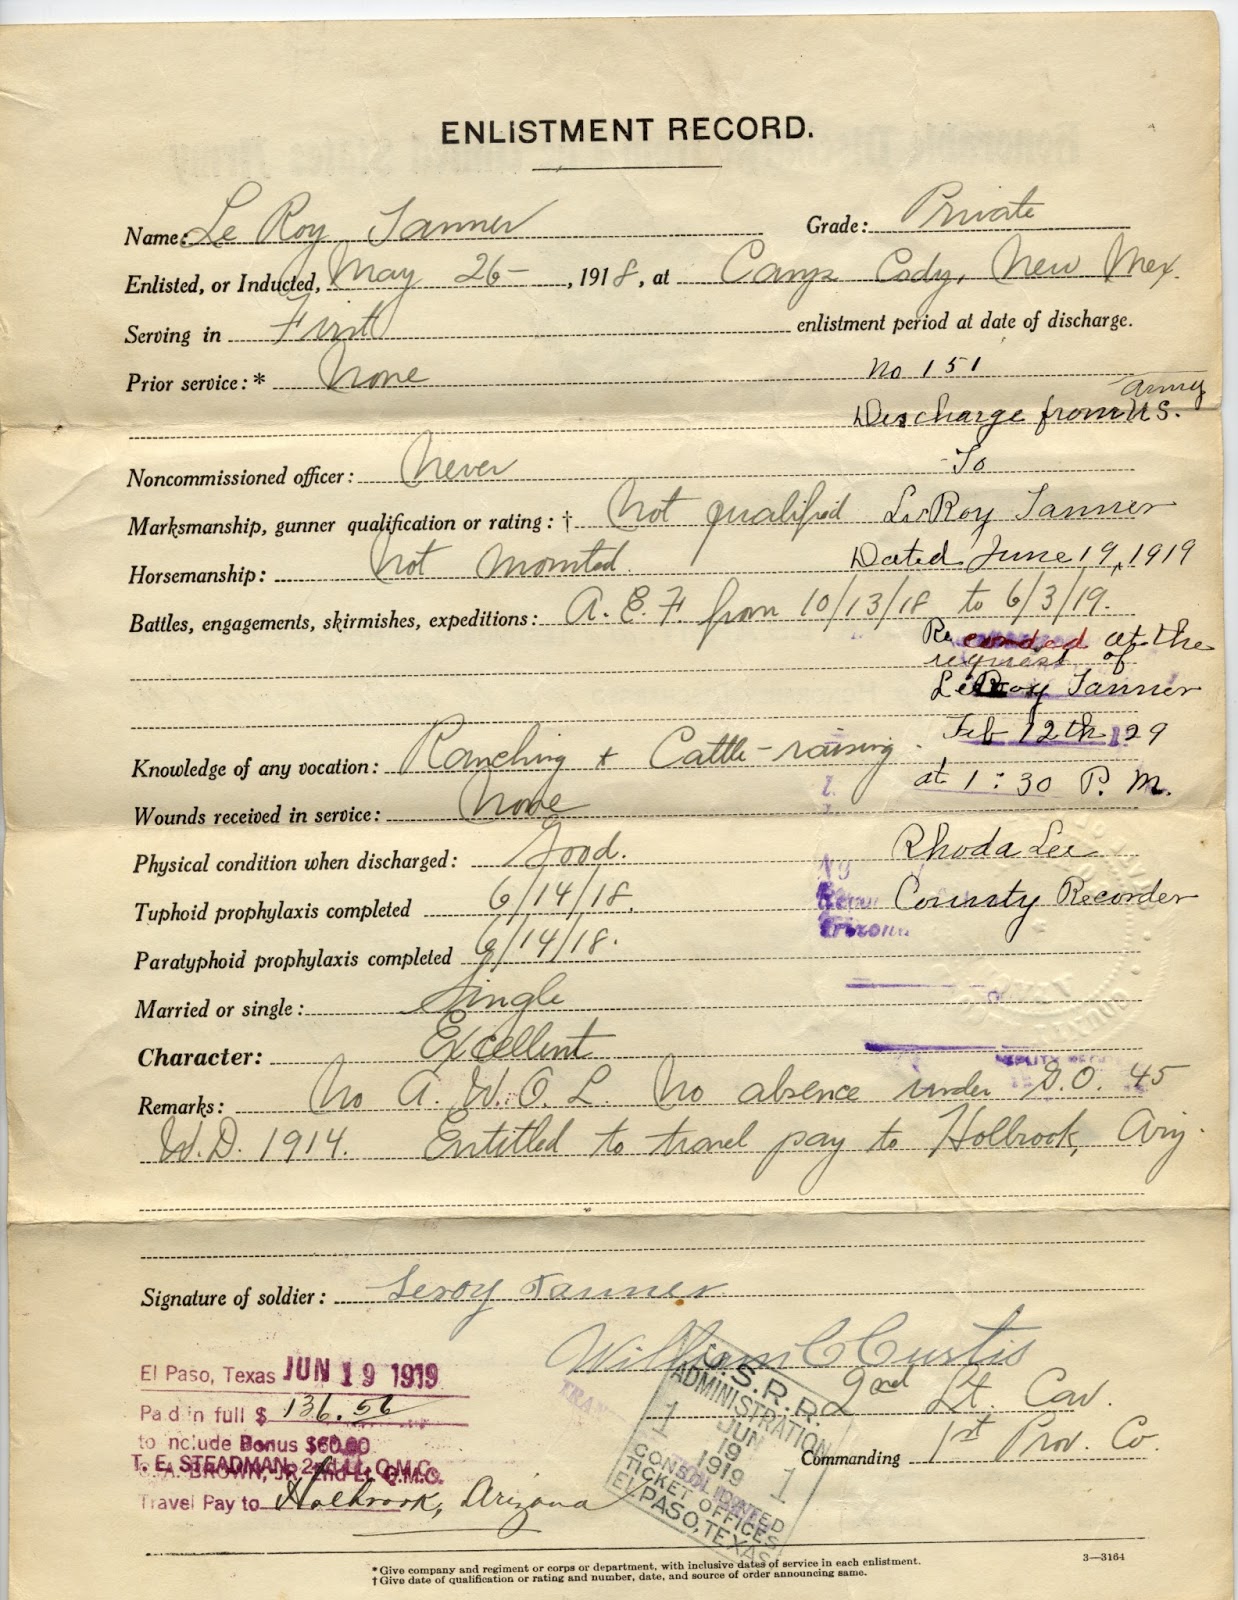 ENLISTMENT RECORD.
Name: Le Roy Tanner Grade: Private
Enlisted, or Inducted, May 26 – , 1918, at Camp Cody, New Mex.
Serving in First enlistment period at date of discharge.
Prior service:* None
No 151
Discharge from U.S. Army
Noncommissioned officer: Never
To
Marksmanship, gunner qualification or rating:† Not qualified
LeRoy Tanner
Horsemanship: Not mounted.
Dated June 19, 1919
Battles, engagements, skirmishes, expeditions: A. E. F. from 10/13/18 to 6/3/19.
Recorded at the
request of
LeRoy Tanner
Feb 12th 29
Knowledge of any vocation: Ranching + Cattle-raising.
at 1:30 P. M.
Wounds received in service: None
Physical condition when discharged: Good.
Rhoda Lee
Typhoid prophylaxis completed 6/14/18.
County Recorder
Paratyphoid prophylaxis completed 6/14/18.
Married or single: Single
Character: Excellent
Remarks: No A. W. O. L. No absence under G.O. 45
W.D. 1914. Entitled to travel pay to Holbrook, Ariz.
Signature of soldier: Leroy Tanner
William C Curtis
2nd Lt. Cav.
Commanding 1st Prov. Co.
El Paso, Texas JUN 19 1919
Paid in full $ 136.56
to include Bonus $60.00
T. E. STEADMAN, 2nd Lt. Q.M.C.
A. BROWN, JR. 2nd Lt. Q.M.C.
Travel Pay to Holbrook, Arizona
U.S.R.R.
ADMINISTRATION
1 JUN 19 1919 1
CONSOLIDATED
TICKET OFFICES
EL PASO, TEXAS
3—3164
*Give company and regiment or corps or department, with inclusive dates of service in each enlistment.
†Give date of qualification or rating and number, date, and source of order announcing same.